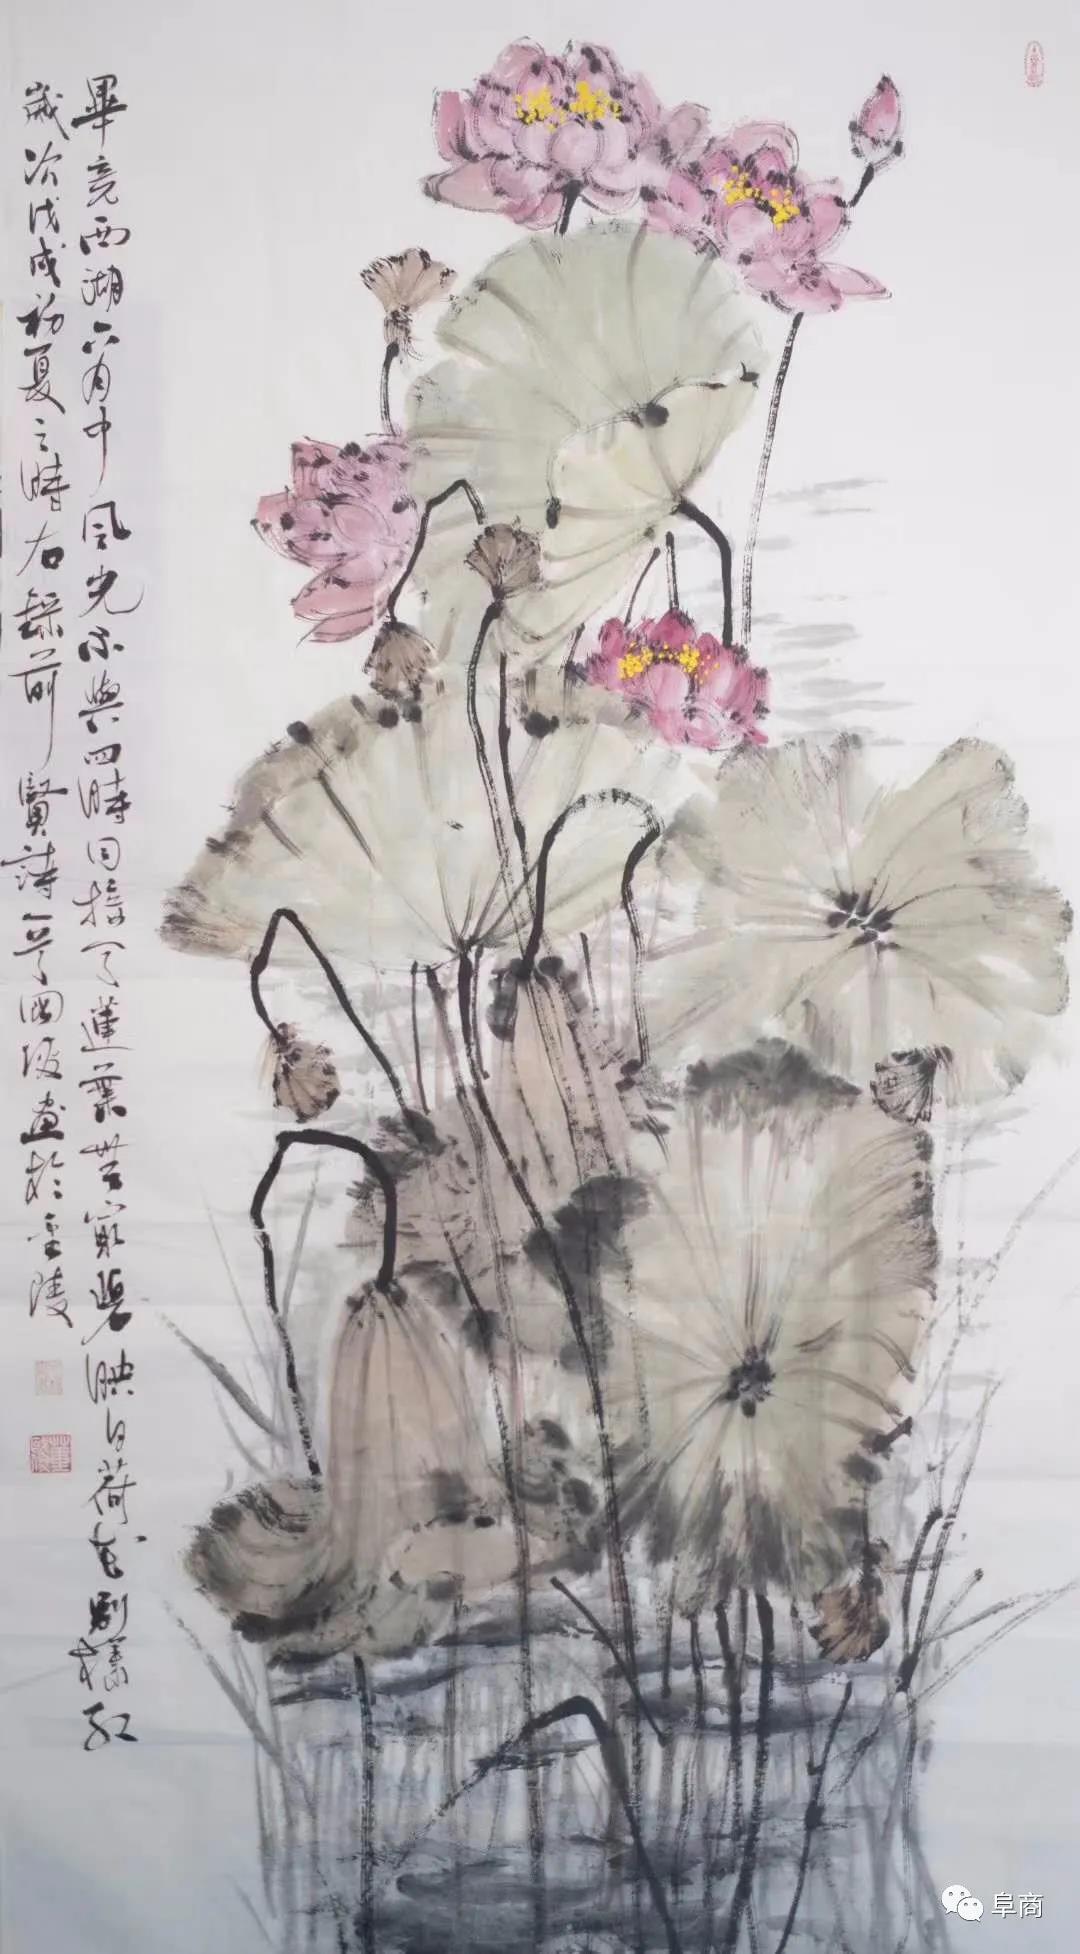 畢竟西湖六月中風光不與四時同接天蓮葉無窮碧映日荷花別樣紅
歲次戊戌初夏之時右錄前賢詩一首國畫於金陵
阜商